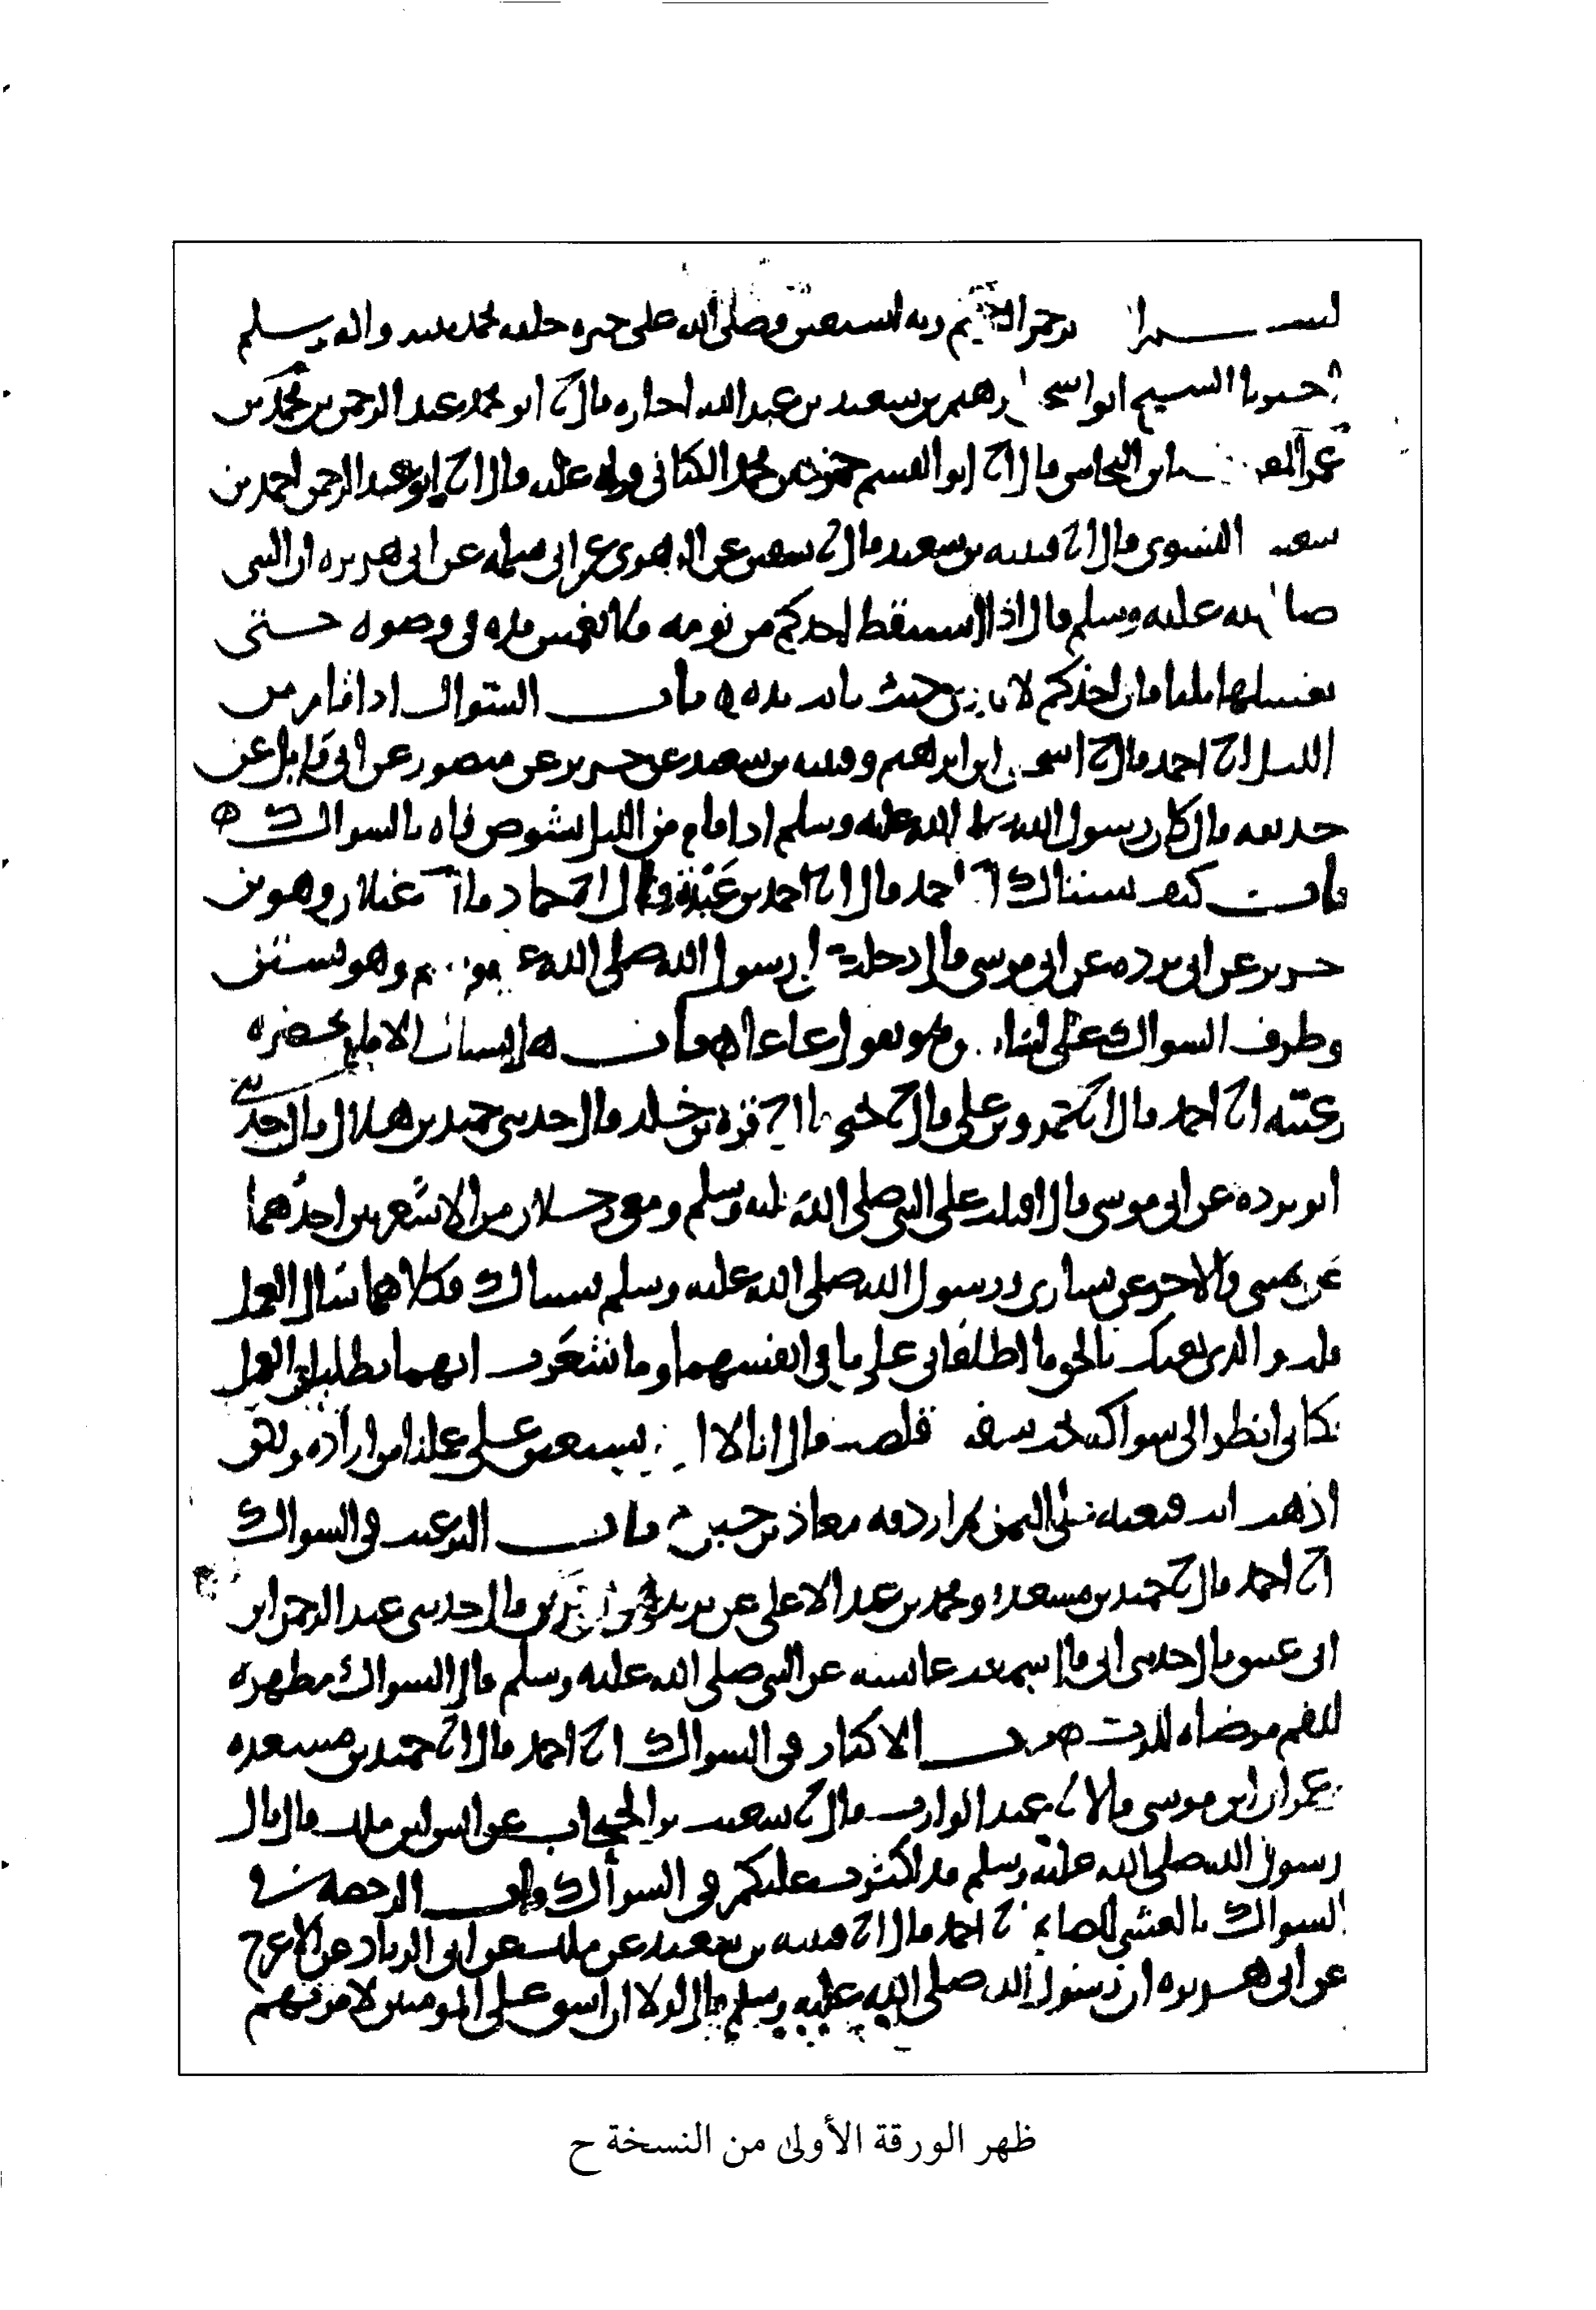 بسم الله الرحمن الرحيم وبه نستعين وصلى الله على خيره خلقه محمد نبيه واله وسلم
اخبرنا الشيخ ابو اسحق ابرهيم بن سعيد بن عبد الله اجازه قال ابو محمد عبد الرحمن بن محمد بن
عمر ابن النحاس قال انا ابو القسم حمزه بن محمد الكناني قراه عليه قال انا ابو عبد الرحمن احمد بن
شعيب النسوي قال انا قتيبه بن سعيد قال نا سفين عن الزهري عن ابي سلمه عن ابي هريره ان النبي
صلى الله عليه وسلم قال اذا استيقظ احدكم من نومه فلا يغمس يده في وضوه حتى
يغسلها ثلثا فان احدكم لا يدري حيث باتت يده ه باب السواك اذا قام من
الليل انا احمد قال انا اسحق ابن ابرهيم وقتيبه بن سعيد عن جرير عن منصور عن ابي وايل عن
حذيفه قال كان رسول الله صلى الله عليه وسلم اذا قام من الليل يشوص فاه بالسواك ه
باب كيف يستاك انا احمد قال انا احمد بن عبدة قال انا حماد قال نا غيلان وهو بن
جرير عن ابي برده عن ابي موسى قال دخلت على رسول الله صلى الله عليه وسلم وهو يستن
وطرف السواك على لسانه وهو يقول عاعا ه باب هل يستاك الامام بحضره
رعيته انا احمد قال انا عمرو بن علي قال نا يحيى قال نا قره بن خلد قال حدثني حميد بن هلال قال حدثني
ابو برده عن ابي موسى قال اقبلت على النبي صلى الله عليه وسلم ومعي رجلان من الاشعريين احدهما
عن يميني والاخر عن يساري ورسول الله صلى الله عليه وسلم يستاك فكلاهما سال العمل
قلت والذي بعثك بالحق ما اطلعاني على ما في انفسهما وما شعرت انهما يطلبان العمل
فكاني انظر الى سواكه تحت شفته قلصت فقال انا لا نستعين على عملنا من اراده ولكن
اذهب انت فبعثه على اليمن ثم اردفه معاذ بن جبل باب الترغيب في السواك
انا احمد قال نا حميد بن مسعده ومحمد بن عبد الاعلى عن يزيد وهو بن زريع قال حدثني عبد الرحمن ابن
ابي عتيق قال حدثني ابي قال سمعت عائشه عن النبي صلى الله عليه وسلم قال السواك مطهرة
للفم مرضاه للرب ه باب الاكثار في السواك انا احمد قال انا حميد بن مسعده
وعمران ابن موسى قالا نا عبد الوارث قال نا شعيب بن الحبحاب عن انس ابن ملك قال قال
رسول الله صلى الله عليه وسلم قد اكثرت عليكم في السواك باب الرخصه في
السواك بالعشي للصايم انا احمد قال انا قتيبه بن سعيد عن ملك عن ابي الزناد عن الاعرج
عن ابي هريره ان رسول الله صلى الله عليه وسلم قال لولا ان اشق على المومنين لامرتهم
ظهر الورقة الأولى من النسخة ح